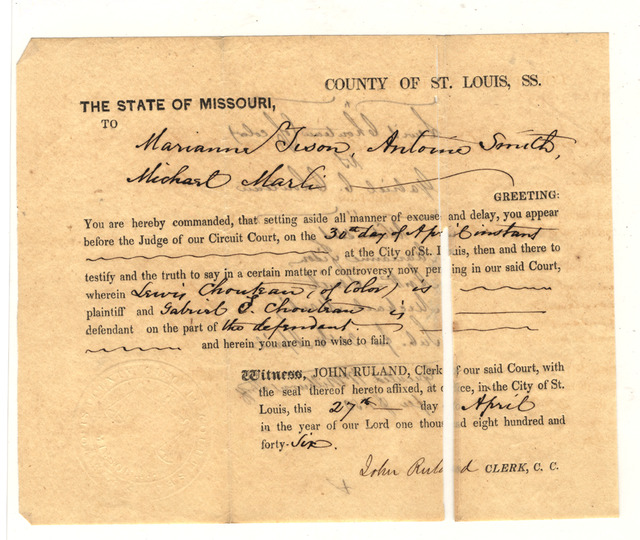 COUNTY OF ST. LOUIS, SS.
THE STATE OF MISSOURI,
TO
Marianne Tison, Antoine Smith,
Michael Marli
GREETING:
You are hereby commanded, that setting aside all manner of excuse and delay, you appear
before the Judge of our Circuit Court, on the 30th day of April instant
at the City of St. Louis, then and there to
testify and the truth to say in a certain matter of controversy now pending in our said Court,
wherein Lewis Chouteau (of Color) is
plaintiff and Gabriel S. Chouteau is
defendant on the part of the defendant
and herein you are in no wise to fail.
Witness, JOHN RULAND, Clerk of our said Court, with
the seal thereof hereto affixed, at office, in the City of St.
Louis, this 27th day of April
in the year of our Lord one thousand eight hundred and
forty-Six.
John Ruland CLERK, C. C.